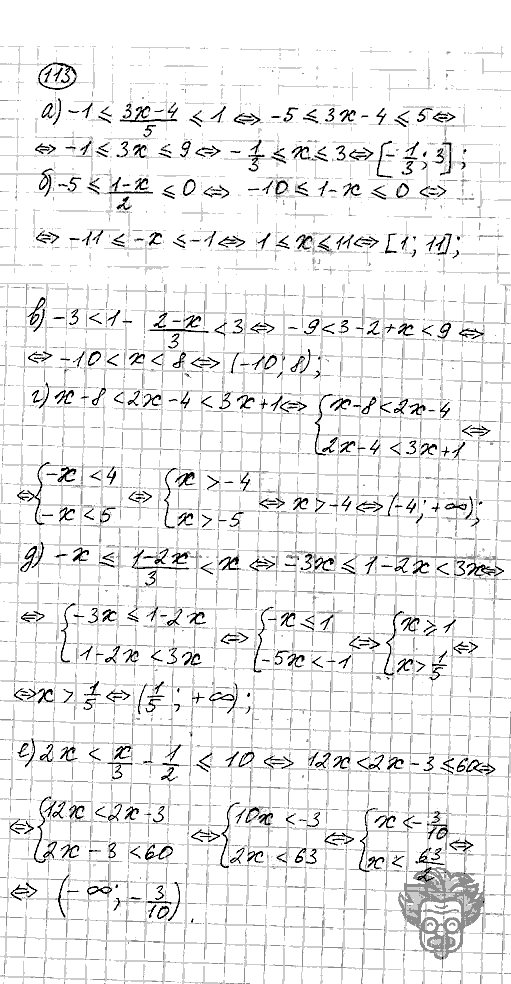 113
а) -1 ≤ (3x-4)/5 ≤ 1 ⇔ -5 ≤ 3x-4 ≤ 5 ⇔
⇔ -1 ≤ 3x ≤ 9 ⇔ -1/3 ≤ x ≤ 3 ⇔ [-1/3; 3];
б) -5 ≤ (1-x)/2 ≤ 0 ⇔ -10 ≤ 1-x ≤ 0 ⇔
⇔ -11 ≤ -x ≤ -1 ⇔ 1 ≤ x ≤ 11 ⇔ [1; 11];
в) -3 < 1 - (2-x)/3 < 3 ⇔ -9 < 3-2+x < 9 ⇔
⇔ -10 < x < 8 ⇔ (-10; 8);
г) x-8 < 2x-4 < 3x+1 ⇔ { x-8 < 2x-4 2x-4 < 3x+1 ⇔
⇔ { -x < 4 -x < 5 ⇔ { x > -4 x > -5 ⇔ x > -4 ⇔ (-4; +∞);
д) -x ≤ (1-2x)/3 < x ⇔ -3x ≤ 1-2x < 3x ⇔
⇔ { -3x ≤ 1-2x 1-2x < 3x ⇔ { -x ≤ 1 -5x < -1 ⇔ { x ≥ 1 x > 1/5 ⇔
⇔ x > 1/5 ⇔ (1/5; +∞);
е) 2x < x/3 - 1/2 ≤ 10 ⇔ 12x < 2x-3 ≤ 60 ⇔
⇔ { 12x < 2x-3 2x-3 < 60 ⇔ { 10x < -3 2x < 63 ⇔ { x < -3/10 x < 63/2 ⇔
⇔ (-∞; -3/10).